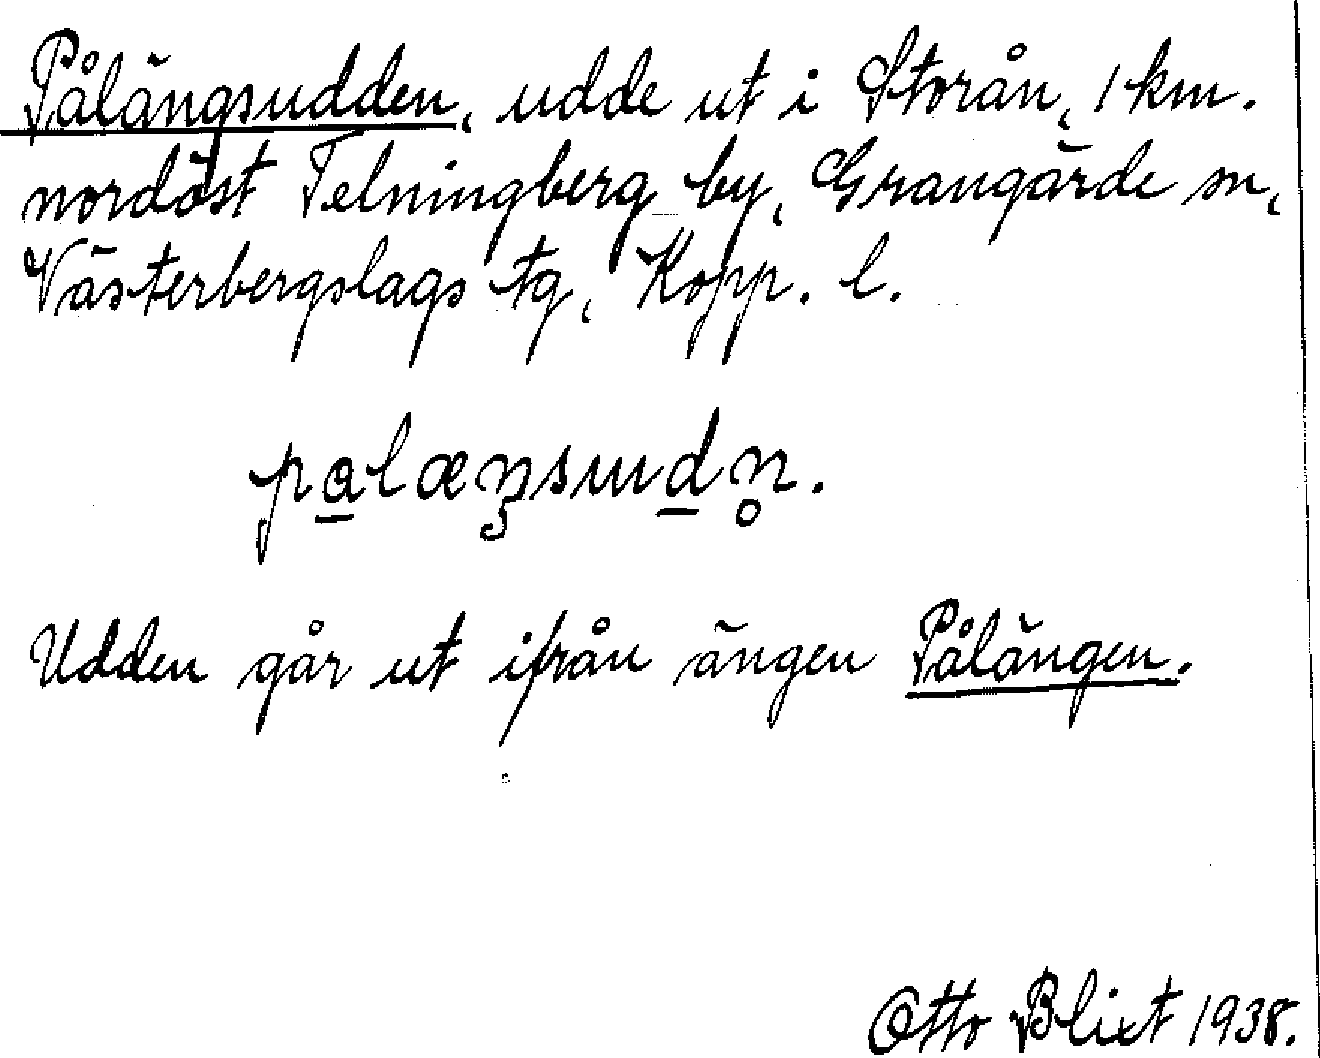 Pålängsudden, udde ut i Storån, 1 km.
nordöst Telningberg by, Grangärde sn,
Västerbergslags tg, Kopp. l.
pa̲læŋsud̲n̥.
Udden går ut ifrån ängen Pålängen.
Otto Blixt 1938.